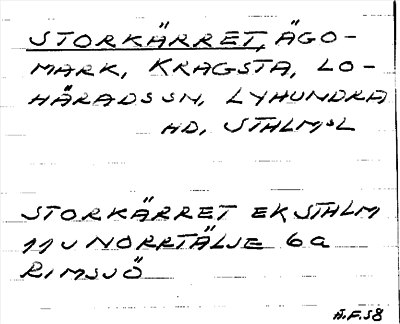 STORKÄRRET, ÄGO-
MARK, KRAGSTA, LO-
HÄRADS SN, LYHUNDRA
HD, STHLMSL
STORKÄRRET EK STHLM
11J NORRTÄLJE 6a
RIMSJÖ
H.F.58